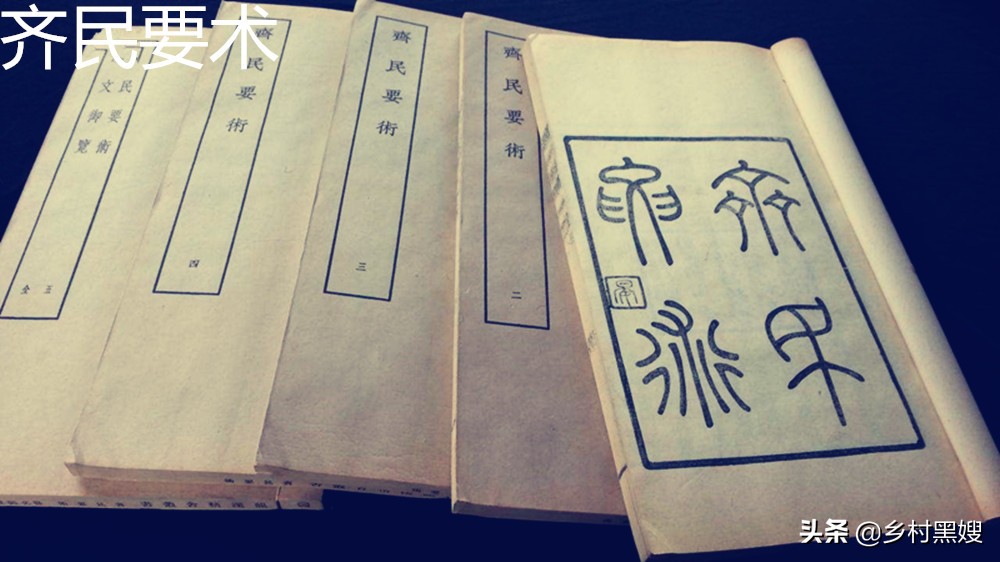 齐民要术
民要術
文御覽
五
全
齊民要術
四
齊民要術
三
齊民要術
二
齊民
要術
头条 @乡村黑嫂